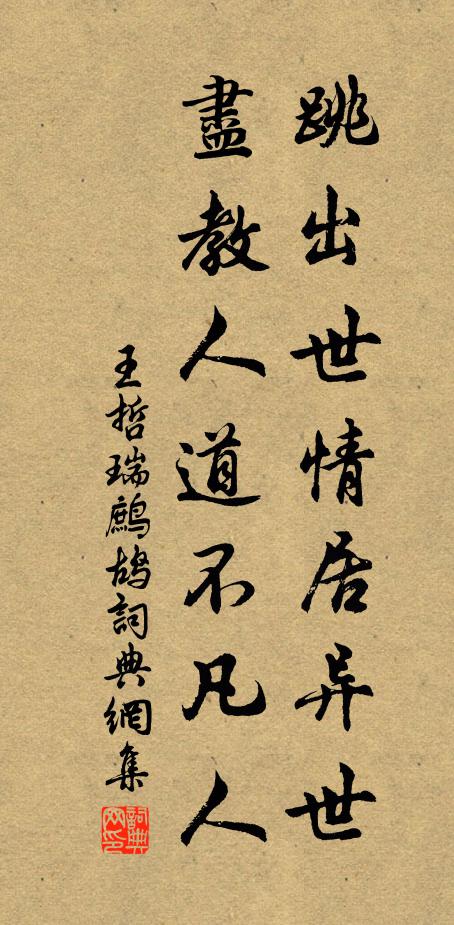 跳出世情居异世
盡教人道不凡人
王哲瑞鷓鴣詞典網集
詞典網印